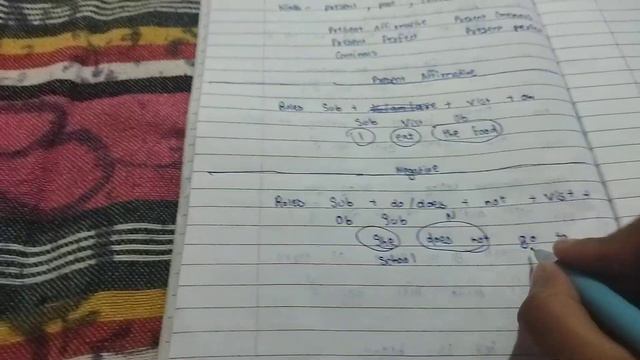 Kinds - present, past,
Present Affirmative Present Continuous
Present Perfect Present perfect
Continuous
Present Affirmative
Rules Sub + + V1st + Ob
Sub V1st Ob
I eat the food
Negative
Rules Sub + do/does + not + V1st +
Ob Sub N
She does not go to
School